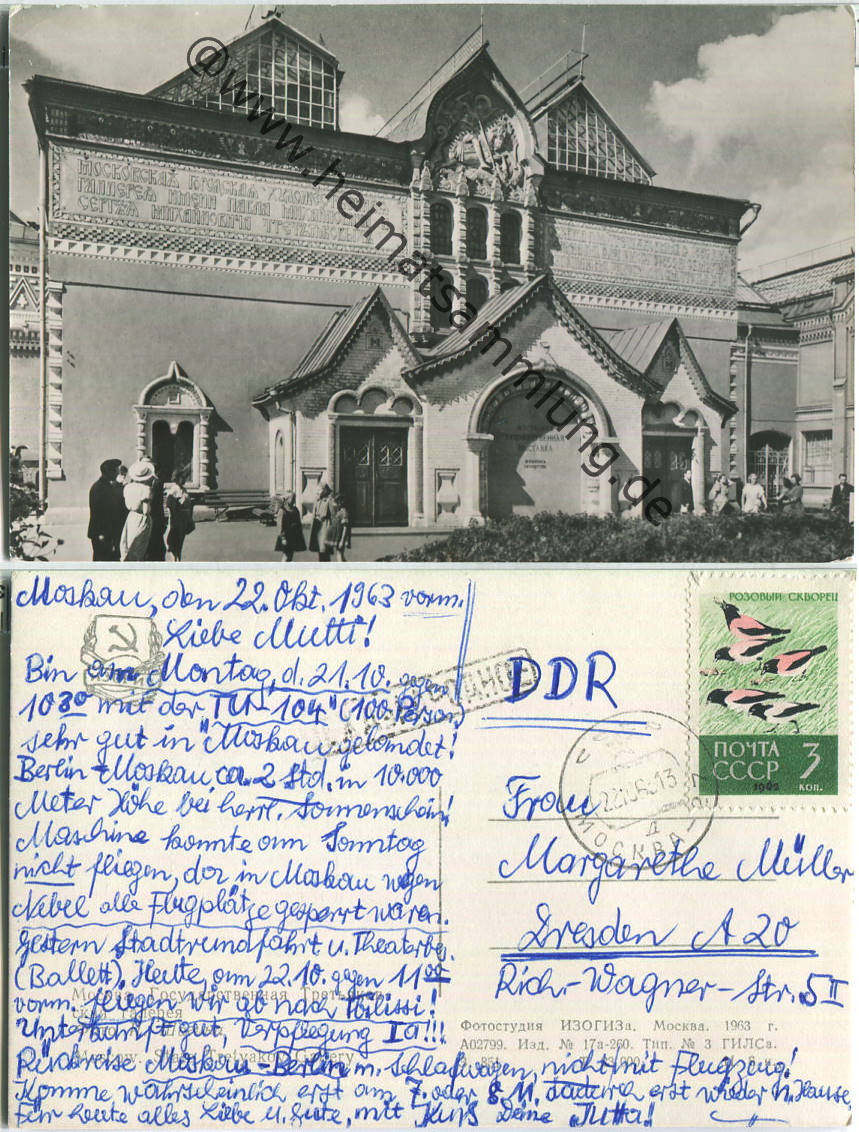 @www.heimatsammlung.de
МОСКОВСКАЯ ГОРОДСКАЯ
ГАЛЛЕРЕЯ ИМЕНИ ПАВЛА
СЕРГЕЯ МИХАЙЛОВИЧА ТРЕТЬЯКОВЫХ
ВЫСТАВКА
Moskau, den 22. Okt. 1963 vorm.
Liebe Mutti!
Bin am Montag, d. 21.10. gegen
10 30 mit der "TU-104" (100 Person)
sehr gut in Moskau gelandet!
Berlin-Moskau ca. 2 Std. in 10.000
Meter Höhe bei herrl. Sonnenschein!
Maschine konnte am Sonntag
nicht fliegen, da in Moskau wegen
Nebel alle Flugplätze gesperrt waren.
Gestern Stadtrundfahrt u. Theaterbes.
(Ballett). Heute, am 22.10. gegen 11 00
vorm. fliegen wir ab nach Tbilissi!
Unterkunft gut, Verpflegung Ia!!!
Rückreise Moskau-Berlin m. Schlafwagen, nicht mit Flugzeug!
Komme wahrscheinlich erst am 7. oder 8.11. dadurch erst wieder n. Hause.
Für heute alles Liebe u. Gute, mit Kuß Deine "Jutta!"
Москва. Государственная Третьяков-
ская галерея
Moscow. State Tretyakov Gallery
DDR
РОЗОВЫЙ СКВОРЕЦ
ПОЧТА
СССР
3
КОП.
1962
МОСКВА
Frau
Margarethe Müller
Dresden A 20
Rich.-Wagner-Str. 5 II
Фотостудия ИЗОГИЗа. Москва. 1963 г.
А02799. Изд. № 17а-260. Тип. № 3 ГИЛСа.